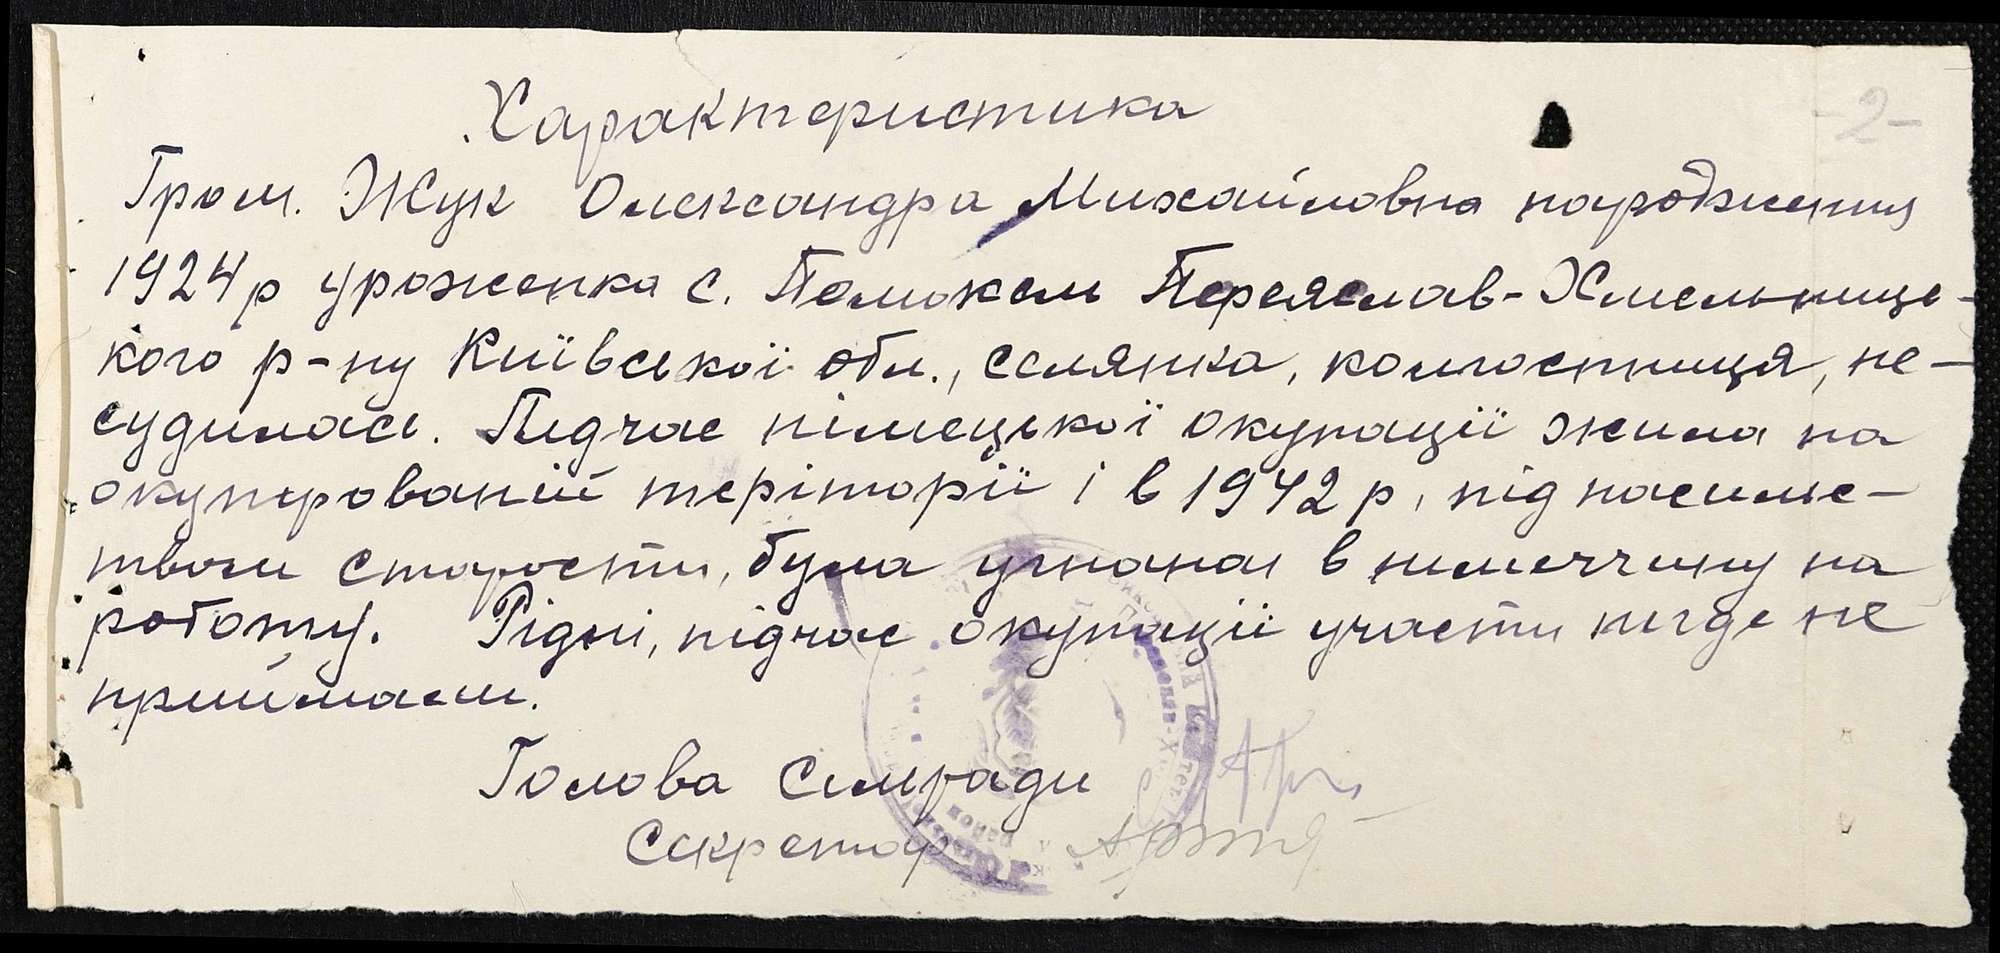 -2-
Характеристика
Гром. Жук Олександра Михайловна народження
1924 р уроженка с. Помокли Переяслав-Хмельниць-
кого р-ну Київської обл., селянка, колгоспниця, не-
судилась. Підчас німецької окупації жила на
окупірованій теріторії і в 1942 р, під насильс-
твом старости, була угнана в німеччину на
роботу. Рідні, підчас окупації участи нигде не
приймали.
Голова Сільради
Секретар